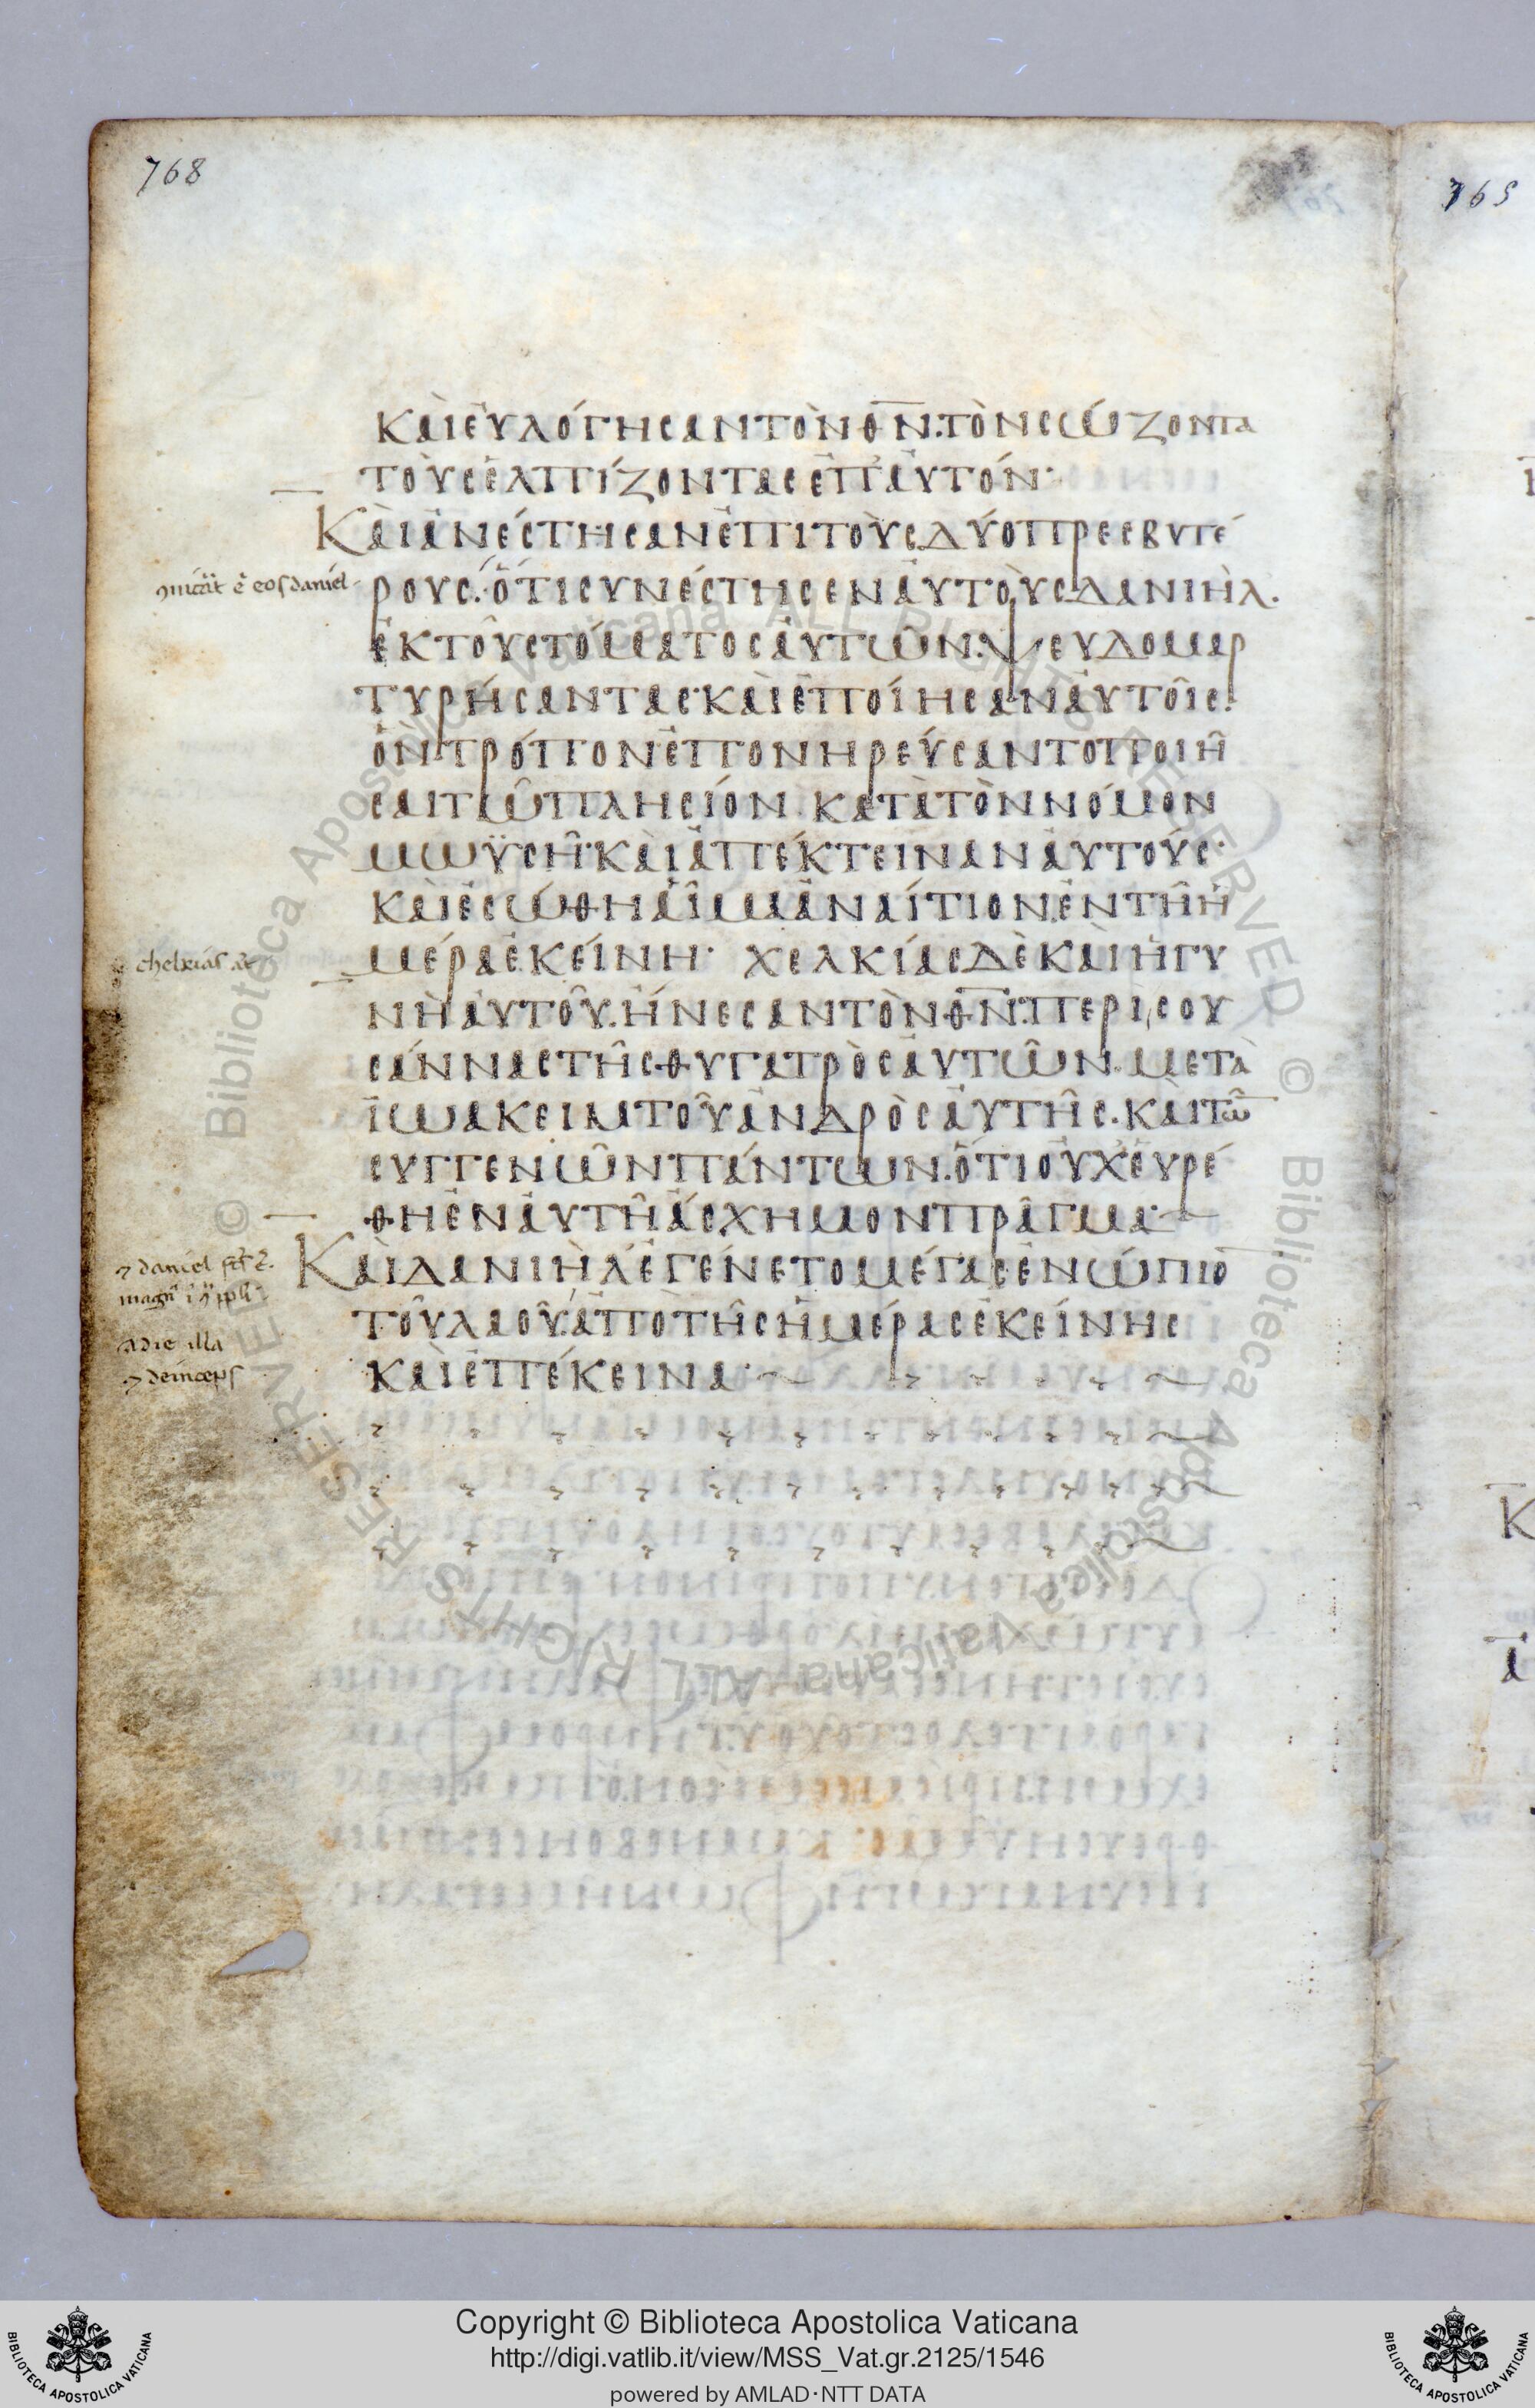 768
769
ΚΑΙΕΥΛΟΓΗϹΑΝΤΟΝΘ̅Ν̅·ΤΟΝϹΩΖΟΝΤΑ
ΤΟΥϹΕΛΠΙΖΟΝΤΑϹΕΠΑΥΤΟΝ·
ΚΑΙΑΝΕϹΤΗϹΑΝΕΠΙΤΟΥϹΔΥΟΠΡΕϹΒΥΤΕ
ΡΟΥϹ·ΟΤΙϹΥΝΕϹΤΗϹΕΝΑΥΤΟΥϹΔΑΝΙΗΛ·
ΕΚΤΟΥϹΤΟΜΑΤΟϹΑΥΤΩΝ·ΨΕΥΔΟΜΑΡ
ΤΥΡΗϹΑΝΤΑϹ·ΚΑΙΕΠΟΙΗϹΑΝΑΥΤΟΙϹ·
ΟΝΤΡΟΠΟΝΕΠΟΝΗΡΕΥϹΑΝΤΟΠΟΙΗ
ϹΑΙΤΩΠΛΗϹΙΟΝ·ΚΑΤΑΤΟΝΝΟΜΟΝ
ΜΩΫϹΗ·ΚΑΙΑΠΕΚΤΕΙΝΑΝΑΥΤΟΥϹ·
ΚΑΙΕϹΩΘΗΑΙΜΑΑΝΑΙΤΙΟΝΕΝΤΗΗ
ΜΕΡΑΕΚΕΙΝΗ· ΧΕΛΚΙΑϹΔΕΚΑΙΗΓΥ
ΝΗΑΥΤΟΥ·ΗΝΕϹΑΝΤΟΝΘ̅Ν̅·ΠΕΡΙϹΟΥ
ϹΑΝΝΑϹΤΗϹΘΥΓΑΤΡΟϹΑΥΤΩΝ·ΜΕΤΑ
ΪΩΑΚΕΙΜΤΟΥΑΝΔΡΟϹΑΥΤΗϹ·ΚΑΙΤΩ̅
ϹΥΓΓΕΝΩΝΠΑΝΤΩΝ·ΟΤΙΟΥΧΕΥΡΕ
ΘΗΕΝΑΥΤΗΑϹΧΗΜΟΝΠΡΑΓΜΑ·
ΚΑΙΔΑΝΙΗΛΕΓΕΝΕΤΟΜΕΓΑϹΕΝΩΠΙΟ̅
ΤΟΥΛΑΟΥ·ΑΠΟΤΗϹΗΜΕΡΑϹΕΚΕΙΝΗϹ
ΚΑΙΕΠΕΚΕΙΝΑ·
eos daniel
chelxias
daniel
a die illa
⁊ deinceps
Copyright © Biblioteca Apostolica Vaticana
http://digi.vatlib.it/view/MSS_Vat.gr.2125/1546
powered by AMLAD·NTT DATA
BIBLIOTECA APOSTOLICA VATICANA
BIBLIOTECA APOSTOLICA VATICANA
© Biblioteca Apostolica Vaticana ALL RIGHTS RESERVED © Biblioteca Apostolica Vaticana ALL RIGHTS RESERVED